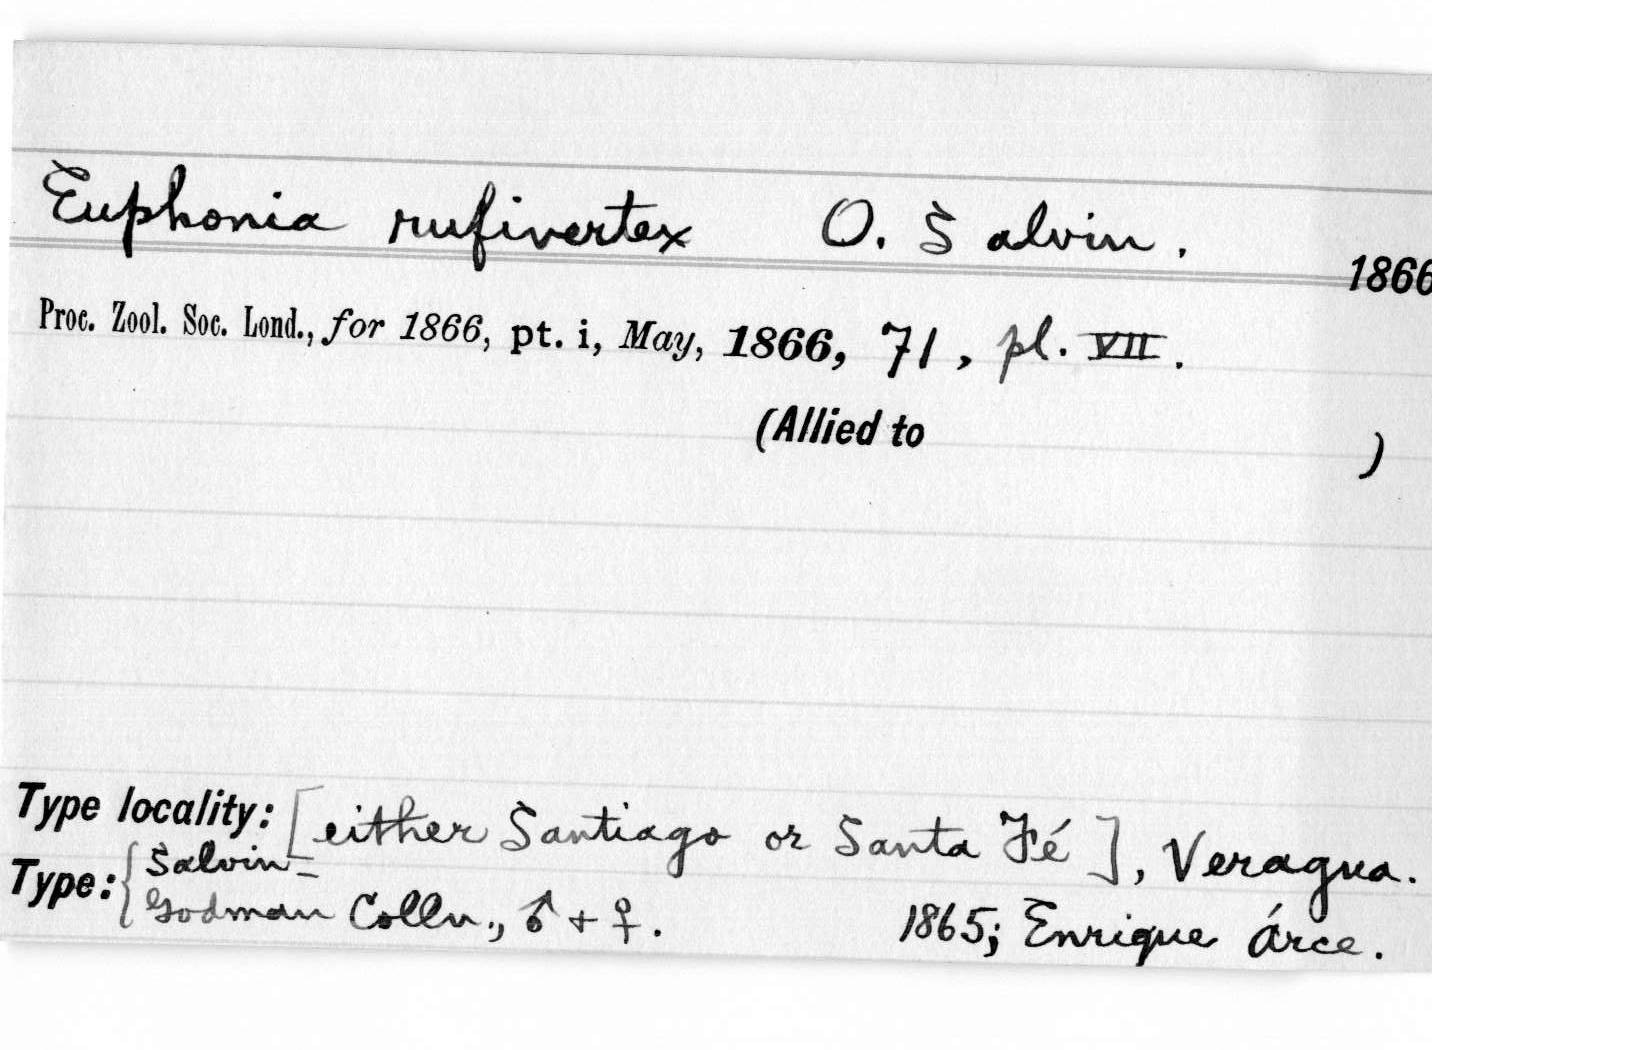 Euphonia rufivertex O. Salvin.
1866
Proc. Zool. Soc. Lond., for 1866, pt. i, May, 1866, 71, pl. VII.
(Allied to )
Type locality: [either Santiago or Santa Fé], Veragua.
Type: { Salvin=
Godman Colln., ♂ + ♀. 1865; Enrique Árce.